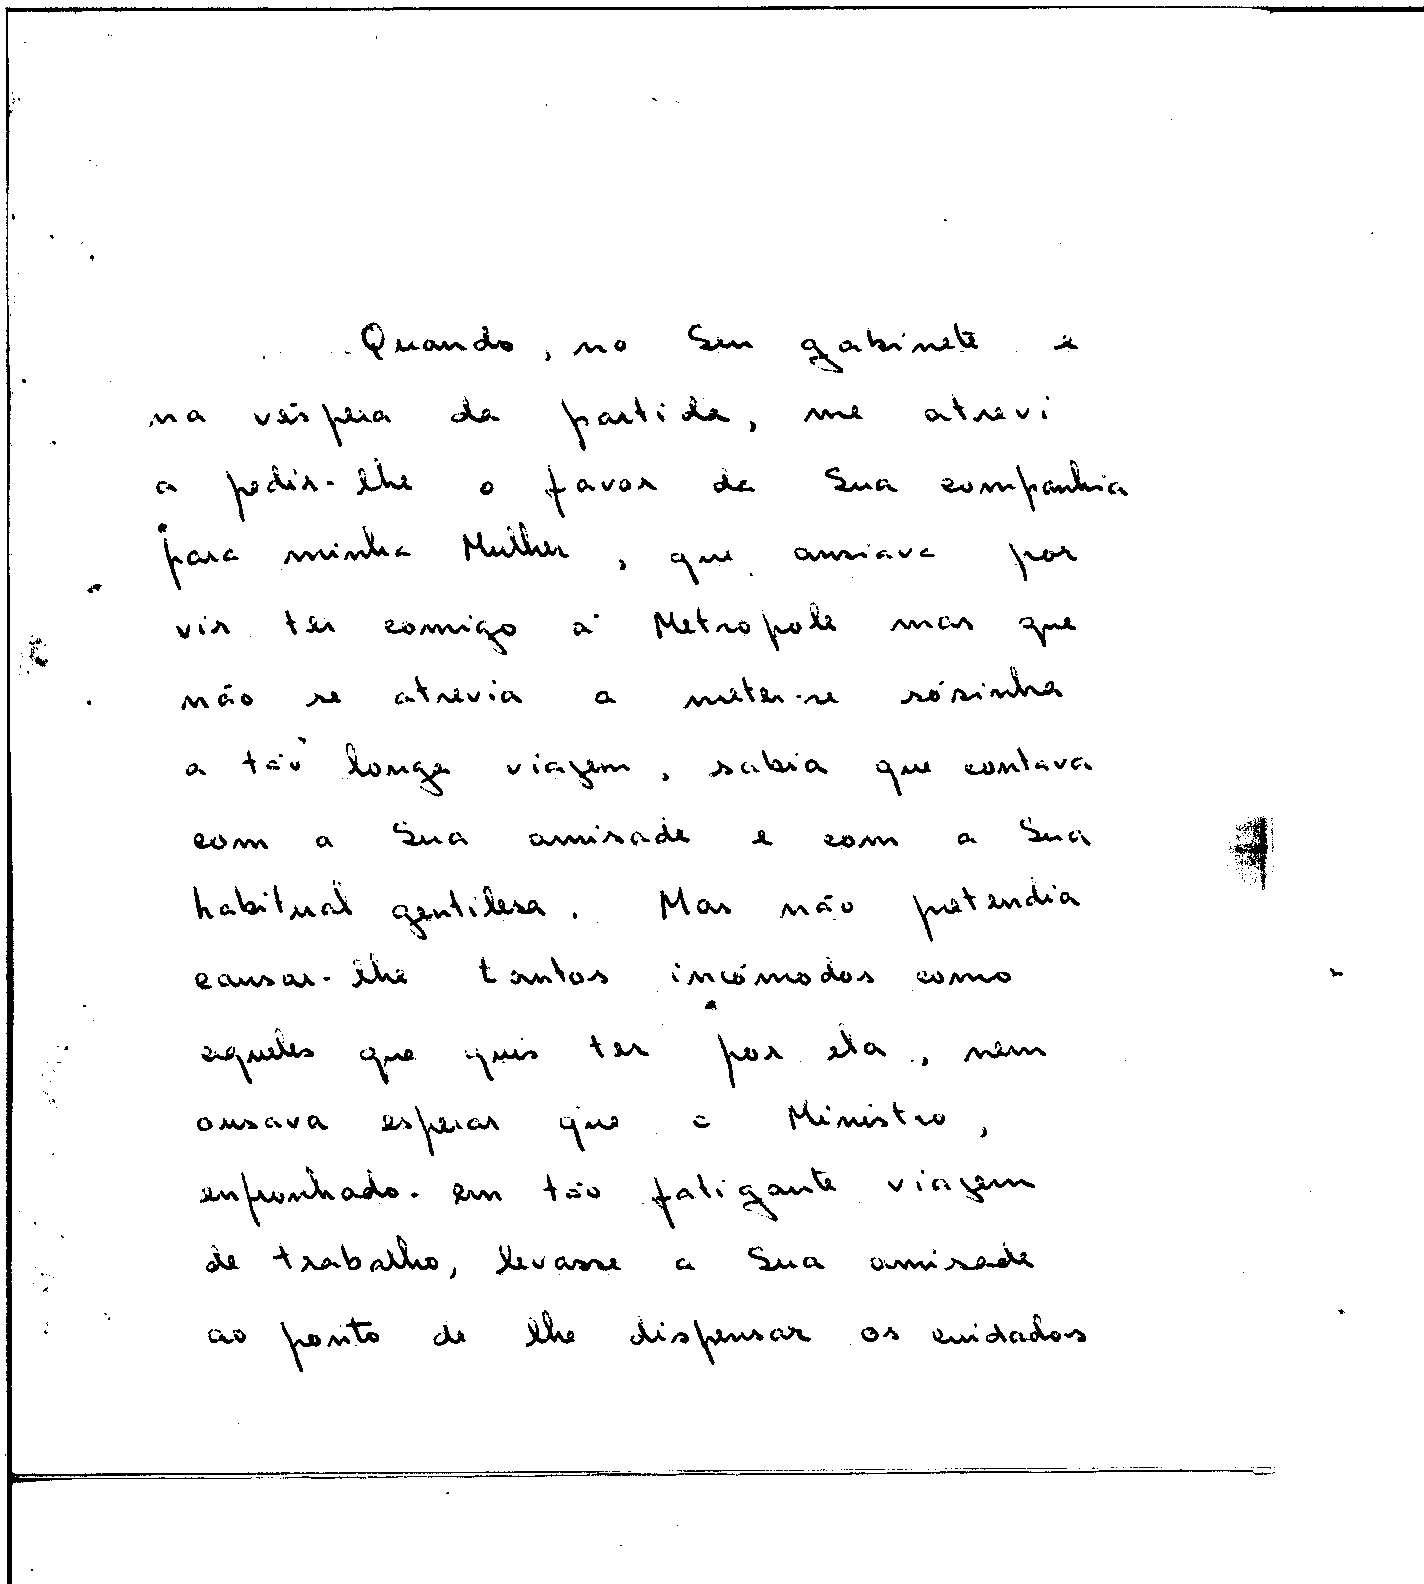 Quando, no Seu gabinete e
na véspera da partida, me atrevi
a pedir-lhe o favor da Sua companhia
para minha Mulher, que ansiava por
vir ter comigo à Metropole mas que
não se atrevia a meter-se sósinha
a tão longa viagem, sabia que contava
com a Sua amisade e com a Sua
habitual gentilesa. Mas não pretendia
causar-lhe tantos incómodos como
aqueles que quis ter por ela, nem
ousava esperar que o Ministro,
enfronhado em tão fatigante viagem
de trabalho, levasse a Sua amisade
ao ponto de lhe dispensar os cuidados